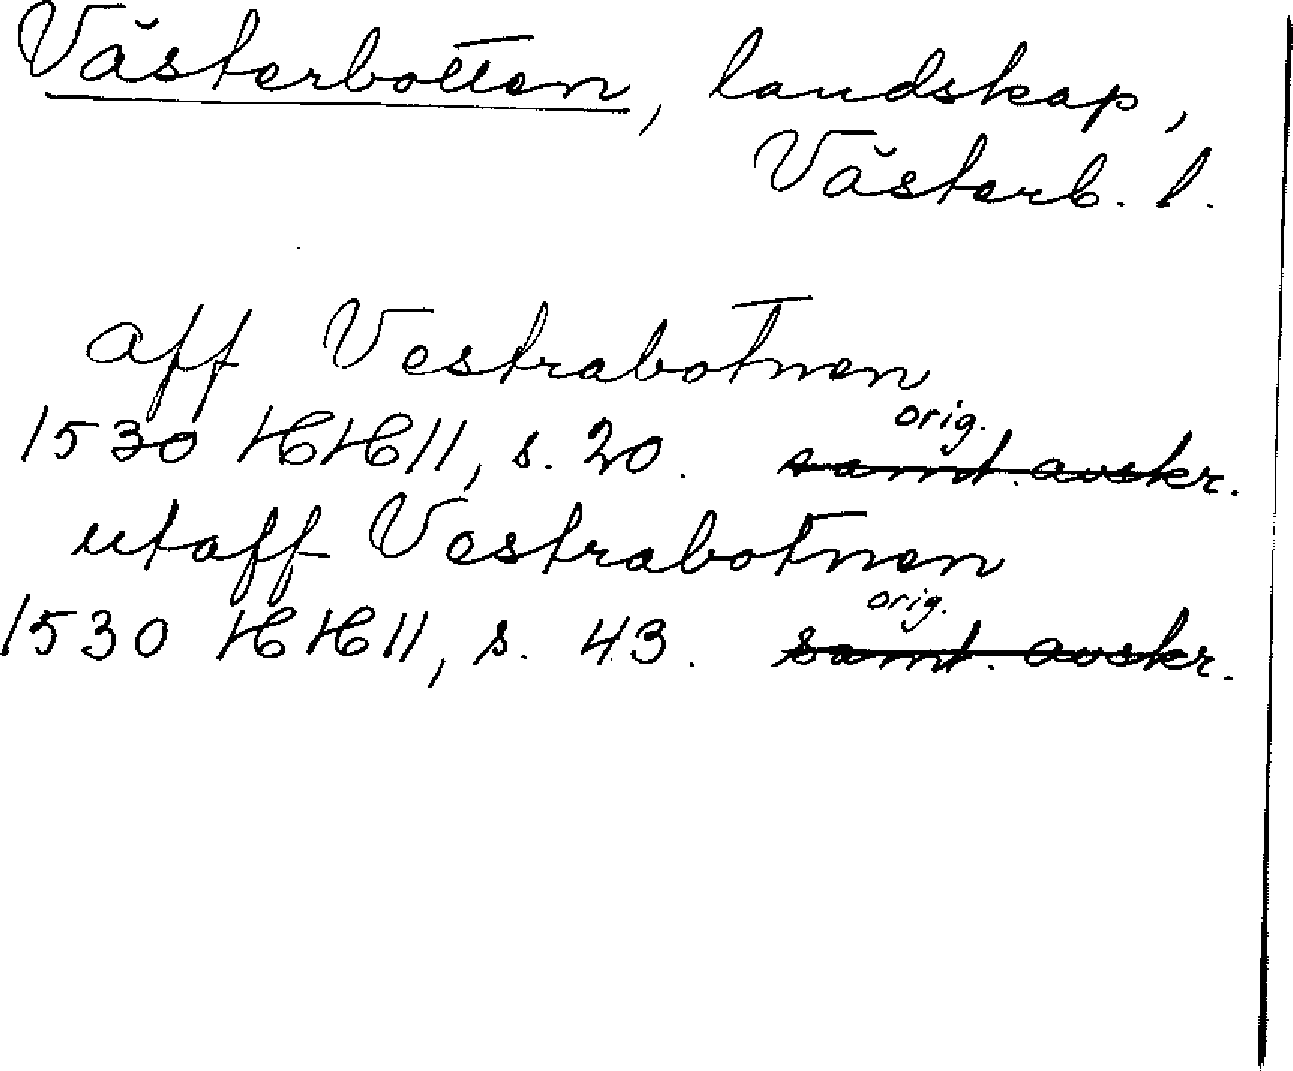 Västerbotten, landskap,
Västerb. l.
aff Vestrabotnen
orig.
1530 HH11, s. 20. samt. avskr.
utaff Vestrabotnen
orig.
1530 HH11, s. 43. samt. avskr.